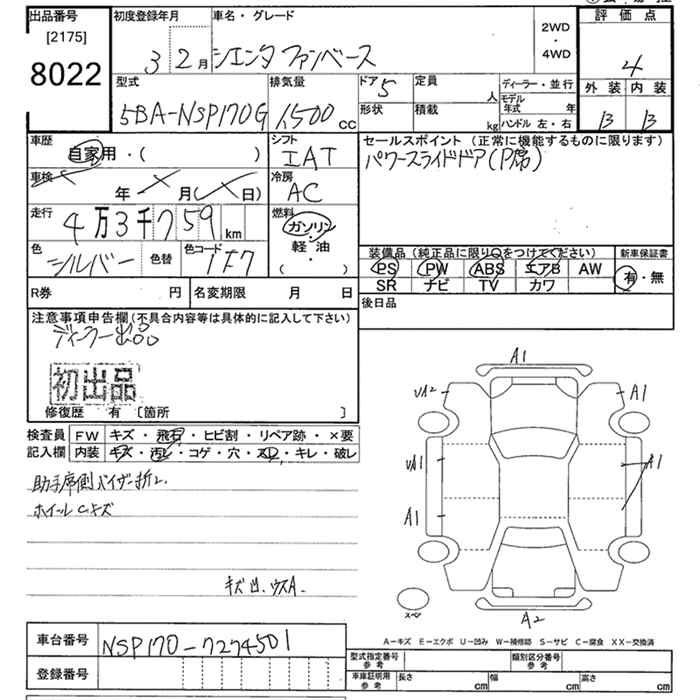 出品番号
[2175]
8022
初度登録年月
3 2月
車名・グレード
シエンタ ファンベース
2WD
・
4WD
評価点
4
外装 内装
B B
型式
5BA-NSP170G
排気量
1,500 cc
ドア 5
定員 人
形状
積載 kg
ディーラー・並行
モデル年式 年
ハンドル 左・右
車歴
自家用・( )
シフト
IAT
セールスポイント(正常に機能するものに限ります)
パワースライドドア(P席)
車検 年 月( 日)
冷房
AC
走行
4万3千759 km
燃料
ガソリン
・
軽・油
・
( )
色
シルバー
色替
色コード
1F7
装備品(純正品に限り○をつけてください)
新車保証書
PS PW ABS エアB AW
有・無
SR ナビ TV カワ
R券 円
名変期限 月 日
後日品
注意事項申告欄(不具合内容等は具体的に記入して下さい)
ディーラー出品
初出品
修復歴 有 [箇所 ]
検査員 FW キズ・飛石・ヒビ割・リペア跡・×要
記入欄 内装 キズ・汚レ・コゲ・穴・スレ・キレ・破レ
助手席側バイザー折レ
ホイールCキズ
キズ凹、ウスA.
A1
A1
A1
A1
A1
A2
スペア
A−キズ E−エクボ U−凹み W−補修跡 S−サビ C−腐食 XX−交換済
車台番号
NSP170-7274501
登録番号
型式指定番号
参考
類別区分番号
参考
車庫証明用
参考
長さ cm
幅 cm
高さ cm